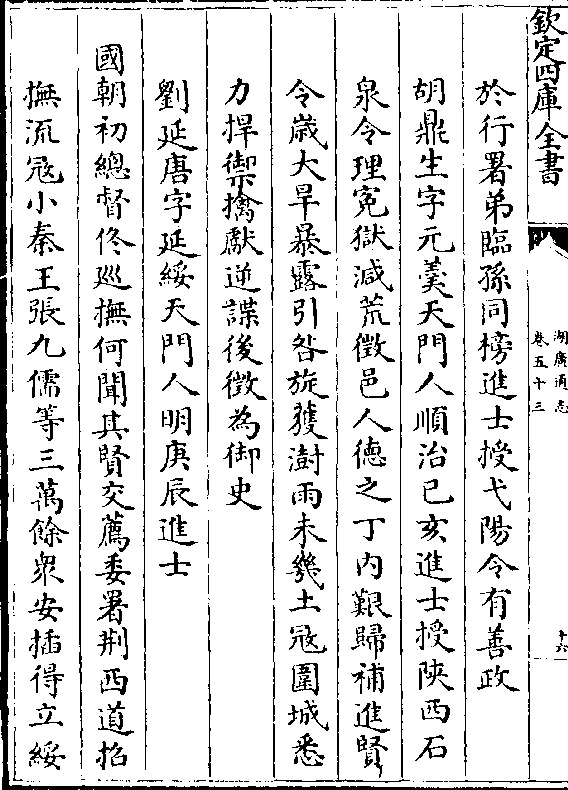 欽定四庫全書
湖廣通志
卷五十三
十六
於行署弟臨孫同榜進士授弋陽令有善政
胡鼎生字元羹天門人順治己亥進士授陜西石
泉令理冤獄減荒徵邑人德之丁内艱歸補進賢
令歳大旱暴露引咎旋獲澍雨未幾土冦圍城悉
力捍禦擒獻逆諜後徵為御史
劉延唐字延綏天門人明庚辰進士
國朝初總督佟廵撫何聞其賢交薦委署荆西道招
撫流冦小秦王張九儒等三萬餘衆安插得立綏